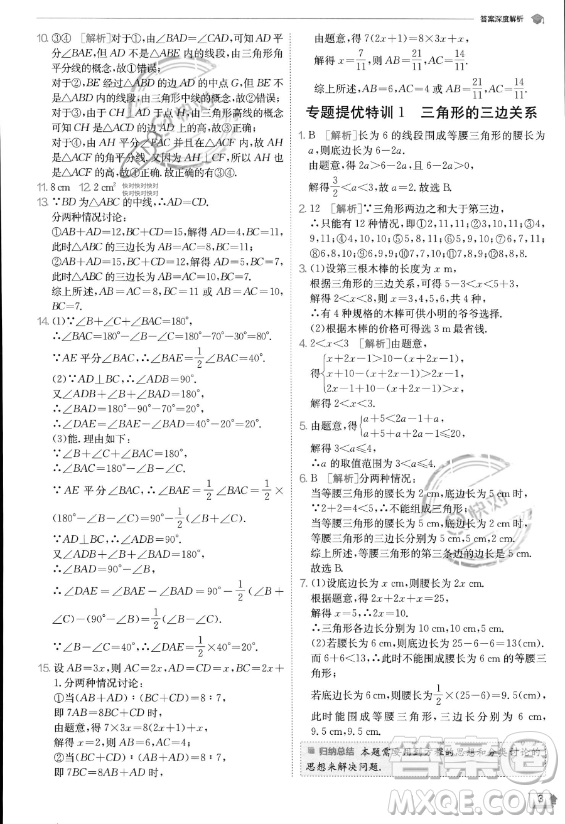 答案深度解析
10. ③④ [解析]对于①,由∠BAD=∠CAD,可知 AD
平分∠BAE,但 AD 不是△ABE 内的线段,由三角形角
平分线的概念,故①错误;
对于②,BE 经过△ABD 的边 AD 的中点 G,但 BE 不
是△ABD 内的线段,由三角形中线的概念,故②错误;
对于③,由于 CH⊥AD 于点 H,由三角形高线的概念
可知 CH 是△ACD 的边 AD 上的高,故③正确;
对于④,由 AH 平分∠FAC 并且在△ACF 内,故 AH
是△ACF 的角平分线.又因为 AH⊥CF,所以 AH 也是
△ACF 的高,故④正确.
11. 8 cm 12. 2 cm²
13. ∵BD 为△ABC 的中线,∴AD=CD.
分两种情况讨论:
①AB+AD=12,BC+CD=15,解得 AD=4,BC=11,
此时△ABC 的三边长为 AB=AC=8,BC=11;
②AB+AD=15,BC+CD=12,解得 AD=5,BC=7,
此时△ABC 的三边长为 AB=AC=10,BC=7.
综上所述,AB=AC=8,BC=11 或 AB=AC=10,
BC=7.
14. (1)∵∠B+∠C+∠BAC=180°,
∴∠BAC=180°-∠B-∠C=180°-30°-70°=80°.
∵AE 平分∠BAC,∴∠BAE=1/2∠BAC=40°.
(2)∵AD⊥BC,∴∠ADB=90°.
又∠ADB+∠B+∠BAD=180°,
∴∠BAD=180°-∠B-∠ADB=60°,
∴∠DAE=∠BAD-∠BAE=60°-40°=20°.
(3)能. 理由如下:
∵∠B+∠C+∠BAC=180°,
∴∠BAC=180°-∠B-∠C.
∵AE 平分∠BAC,∴∠BAE=1/2∠BAC=1/2×
(180°-∠B-∠C)=90°-1/2(∠B+∠C).
∵AD⊥BC,∴∠ADB=90°.
又∠ADB+∠B+∠BAD=180°,
∴∠BAD=90°-∠B,
∴∠DAE=∠BAE-∠BAD=90°-1/2(∠B+
∠C)-(90°-∠B)=1/2(∠B-∠C).
∵∠B-∠C=40°,∴∠DAE=1/2×40°=20°.
15. 设 AB=3x,则 AC=2x,AD=CD=x,BC=2x+
1. 分两种情况讨论:
①当(AB+AD):(BC+CD)=8:7,
即 7(AB+AD)=8(BC+CD)时,
由题意,得 7(3x+x)=8(2x+1+x),
解得 x=2,则 AB=6,AC=4;
②当(BC+CD):(AB+AD)=8:7,
即 7(BC+CD)=8(AB+AD)时,
由题意,得 7(2x+1+x)=8×3x+x,
解得 x=7/11,则 AB=21/11,AC=14/11.
综上所述,AB=6,AC=4 或 AB=21/11,AC=14/11.
专题提优特训 1 三角形的三边关系
1. B [解析]长为 6 的线段围成等腰三角形的腰长为
a,则底边长为 6-2a.
由题意,得 2a>6-2a,且 6-2a>0,
解得3/2<a<3,故选 B.
2. 12 [解析]∵三角形两边之和大于第三边,
∴只能有 12 种情况,即①2,11,11;②3,10,11;③4,
9,11;④4,10,10;⑤5,8,11;⑥5,9,10;⑦6,7,11;
⑧6,8,10;⑨6,9,9;⑩7,7,10;⑪7,8,9;⑫8,8,8.
3. (1)设第三根木棒的长度为 x m,
根据三角形的三边关系,得 5-3<x<5+3,
解得 2<x<8,则 x=3,4,5,6,7,共 5 种,
∴有 4 种规格的木棒可供小明的爷爷选择.
(2)根据木棒的价格可选 3 m 最省钱.
4. 2<x<3 [解析]由题意,
得{x+2x-1>10-(x-2),
x+10-(x-2)>2x-1,
2x-1+10-(x-2)>x,
解得 2<x<3.
5. 由题意,得{a+5<2a-1+a,
a+5+a+2a-1≤20,
解得 3<a≤4.
∴a 的取值范围为 3<a≤4.
6. B [解析]分两种情况:
当等腰三角形的腰长为 2 cm,底边长为 5 cm 时,
∵2+2=4<5,∴不能组成三角形;
当等腰三角形的腰长为 5 cm,底边长为 2 cm 时,
综上所述,等腰三角形的第三条边的边长是 5 cm.
故选 B.
7. (1)设底边长为 x cm,则腰长为 2x cm.
根据题意,得 2x+2x+x=25,
解得 x=5,∴2x=10.
∴三角形各边长分别为 10 cm、10 cm、5 cm.
(2)若腰长为 6 cm,则底边长为 25-6-6=13(cm).
而 6+6<13,∴不能围成腰长为 6 cm 的等腰三
角形;
若底边长为 6 cm,则腰长为1/2×(25-6)=9.5(cm),
此时能围成等腰三角形,三边长分别为 6 cm、9.5 cm、
9.5 cm.
归纳总结 本题需要用到方程的思想和分类讨论的
思想来解决问题.
3
作业精灵
MXQE.COM